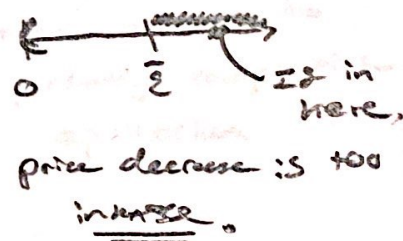 0
If in
here,
price decrease is too
intense.